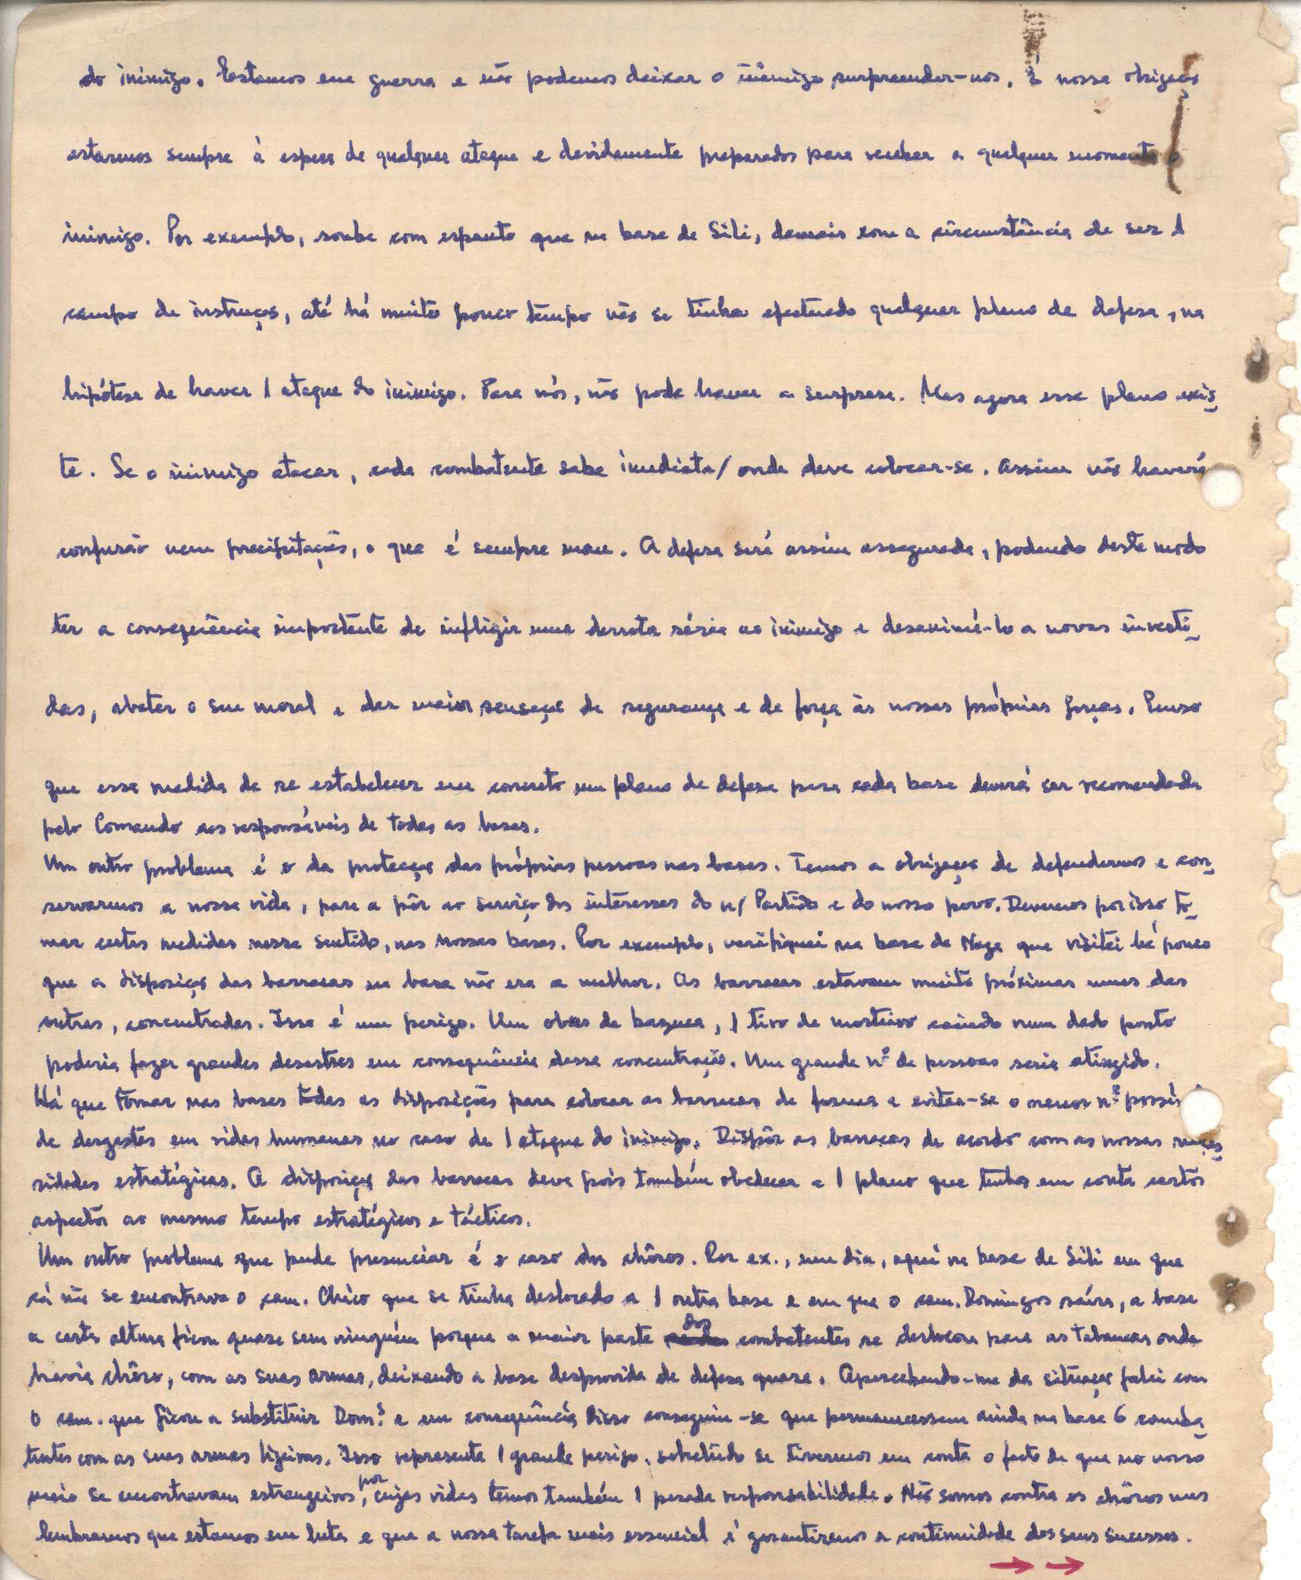 do inimigo. Estamos em guerra e não podemos deixar o inimigo surpreender-nos. É nossa obrigação
estarmos sempre à espera de qualquer ataque e devidamente preparados para receber a qualquer momento o
inimigo. Por exemplo, soube com espanto que na base de Sili, demais com a circunstância de ser 1
campo de instrução, até há muito pouco tempo não se tinha efectuado qualquer plano de defesa, na
hipótese de haver 1 ataque do inimigo. Para nós, não pode haver a surpresa. Mas agora esse plano exis-
te. Se o inimigo atacar, cada combatente sabe imediata/ onde deve colocar-se. Assim não haverá
confusão nem precipitação, o que é sempre mau. A defesa será assim assegurada, podendo deste modo
ter a consequência importante de infligir uma derrota séria ao inimigo e desanimá-lo a novas investi-
das, abater o seu moral e dar maior sensação de segurança e de força às nossas próprias forças. Penso
que essa medida de se estabelecer em concreto um plano de defesa para cada base deverá ser recomendada
pelo Comando aos responsáveis de todas as bases.
Um outro problema é o da protecção das próprias pessoas nas bases. Temos a obrigação de defendermos e con-
servarmos a nossa vida, para a pôr ao serviço dos interesses do n/ Partido e do nosso povo. Devemos por isso to-
mar certas medidas nesse sentido, nas nossas bases. Por exemplo, verifiquei na base de Naga que visitei há pouco
que a disposição das barracas na base não era a melhor. As barracas estavam muito próximas umas das
outras, concentradas. Isso é um perigo. Um obus de bazuca, 1 tiro de morteiro caindo num dado ponto
poderia fazer grandes desastres em consequência dessa concentração. Um grande nº de pessoas seria atingido.
Há que tomar nas bases todas as disposições para colocar as barracas de forma a evitar-se o menor nº possí
de desgastes em vidas humanas no caso de 1 ataque do inimigo. Dispôr as barracas de acordo com as nossas neces-
sidades estratégicas. A disposição das barracas deve pois também obedecer a 1 plano que tenha em conta certos
aspectos ao mesmo tempo estratégicos e tácticos.
Um outro problema que pude presenciar é o caso dos chôros. Por ex., num dia, aqui na base de Sili em que
cá não se encontrava o cam. Chico que se tinha deslocado a 1 outra base e em que o cam. Domingos saíra, a base
a certa altura ficou quase sem ninguém porque a maior parte dos combatentes se deslocou para as tabancas onde
havia chôro, com as suas armas, deixando a base desprovida de defesa quase. Apercebendo-me da situação falei com
o cam. que ficou a substituir Domº e em consequência disso conseguiu-se que permanecessem ainda na base 6 comba-
tentes com as suas armas ligeiras. Isso representa 1 grande perigo, sobretudo se tivermos em conta o facto de que no nosso
meio se encontravam estrangeiros, por cujas vidas temos também 1 pesada responsabilidade. Não somos contra os chôros mas
lembramos que estamos em luta e que a nossa tarefa mais essencial é garantirmos a continuidade dos seus sucessos.